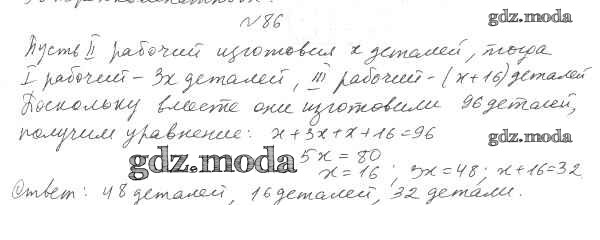 №86
gdz.moda
Пусть II рабочий изготовил x деталей, тогда
I рабочий - 3x деталей, III рабочий - (x+16) деталей
Поскольку вместе они изготовили 96 деталей,
получим уравнение: x+3x+x+16=96
gdz.moda
gdz.moda
5x = 80
x = 16; 3x = 48; x+16=32
Ответ: 48 деталей, 16 деталей, 32 детали.